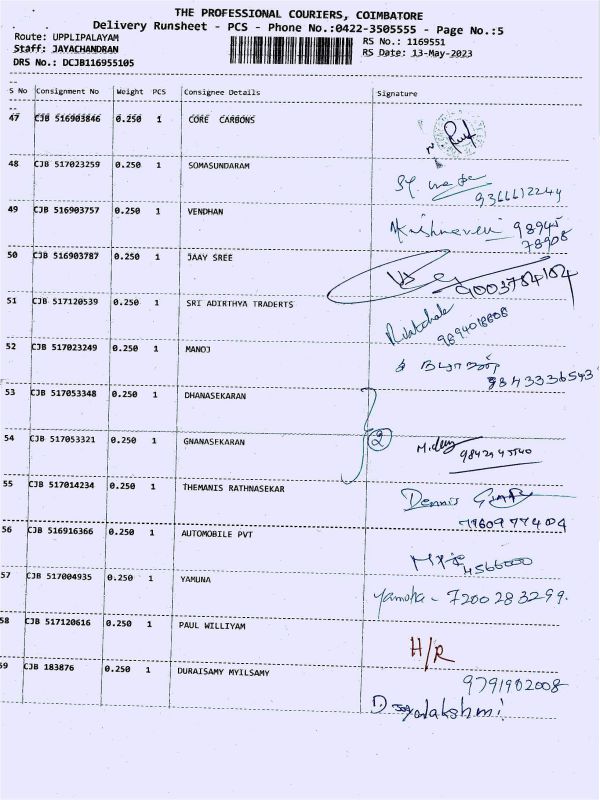 THE PROFESSIONAL COURIERS, COIMBATORE
Delivery Runsheet - PCS - Phone No.:0422-3505555 - Page No.:5
Route: UPPLIPALAYAM RS No.: 1169551
Staff: JAYACHANDRAN RS Date: 13-May-2023
DRS No.: DCJB116955105
S No Consignment No Weight PCS Consignee Details Signature
47 CJB 516903846 0.250 1 CORE CARBONS
48 CJB 517023259 0.250 1 SOMASUNDARAM
9366612244
49 CJB 516903757 0.250 1 VENDHAN Krishnaveni 98945
78908
50 CJB 516903787 0.250 1 JAAY SREE
9003784104
51 CJB 517120539 0.250 1 SRI ADIRTHYA TRADERTS
9894018808
52 CJB 517023249 0.250 1 MANOJ
9843336543
53 CJB 517053348 0.250 1 DHANASEKARAN
2
54 CJB 517053321 0.250 1 GNANASEKARAN
55 CJB 517014234 0.250 1 THEMANIS RATHNASEKAR Dennis
56 CJB 516916366 0.250 1 AUTOMOBILE PVT
4566000
57 CJB 517004935 0.250 1 YAMUNA - 7200283299.
58 CJB 517120616 0.250 1 PAUL WILLIYAM H/R
59 CJB 183876 0.250 1 DURAISAMY MYILSAMY 9791902008